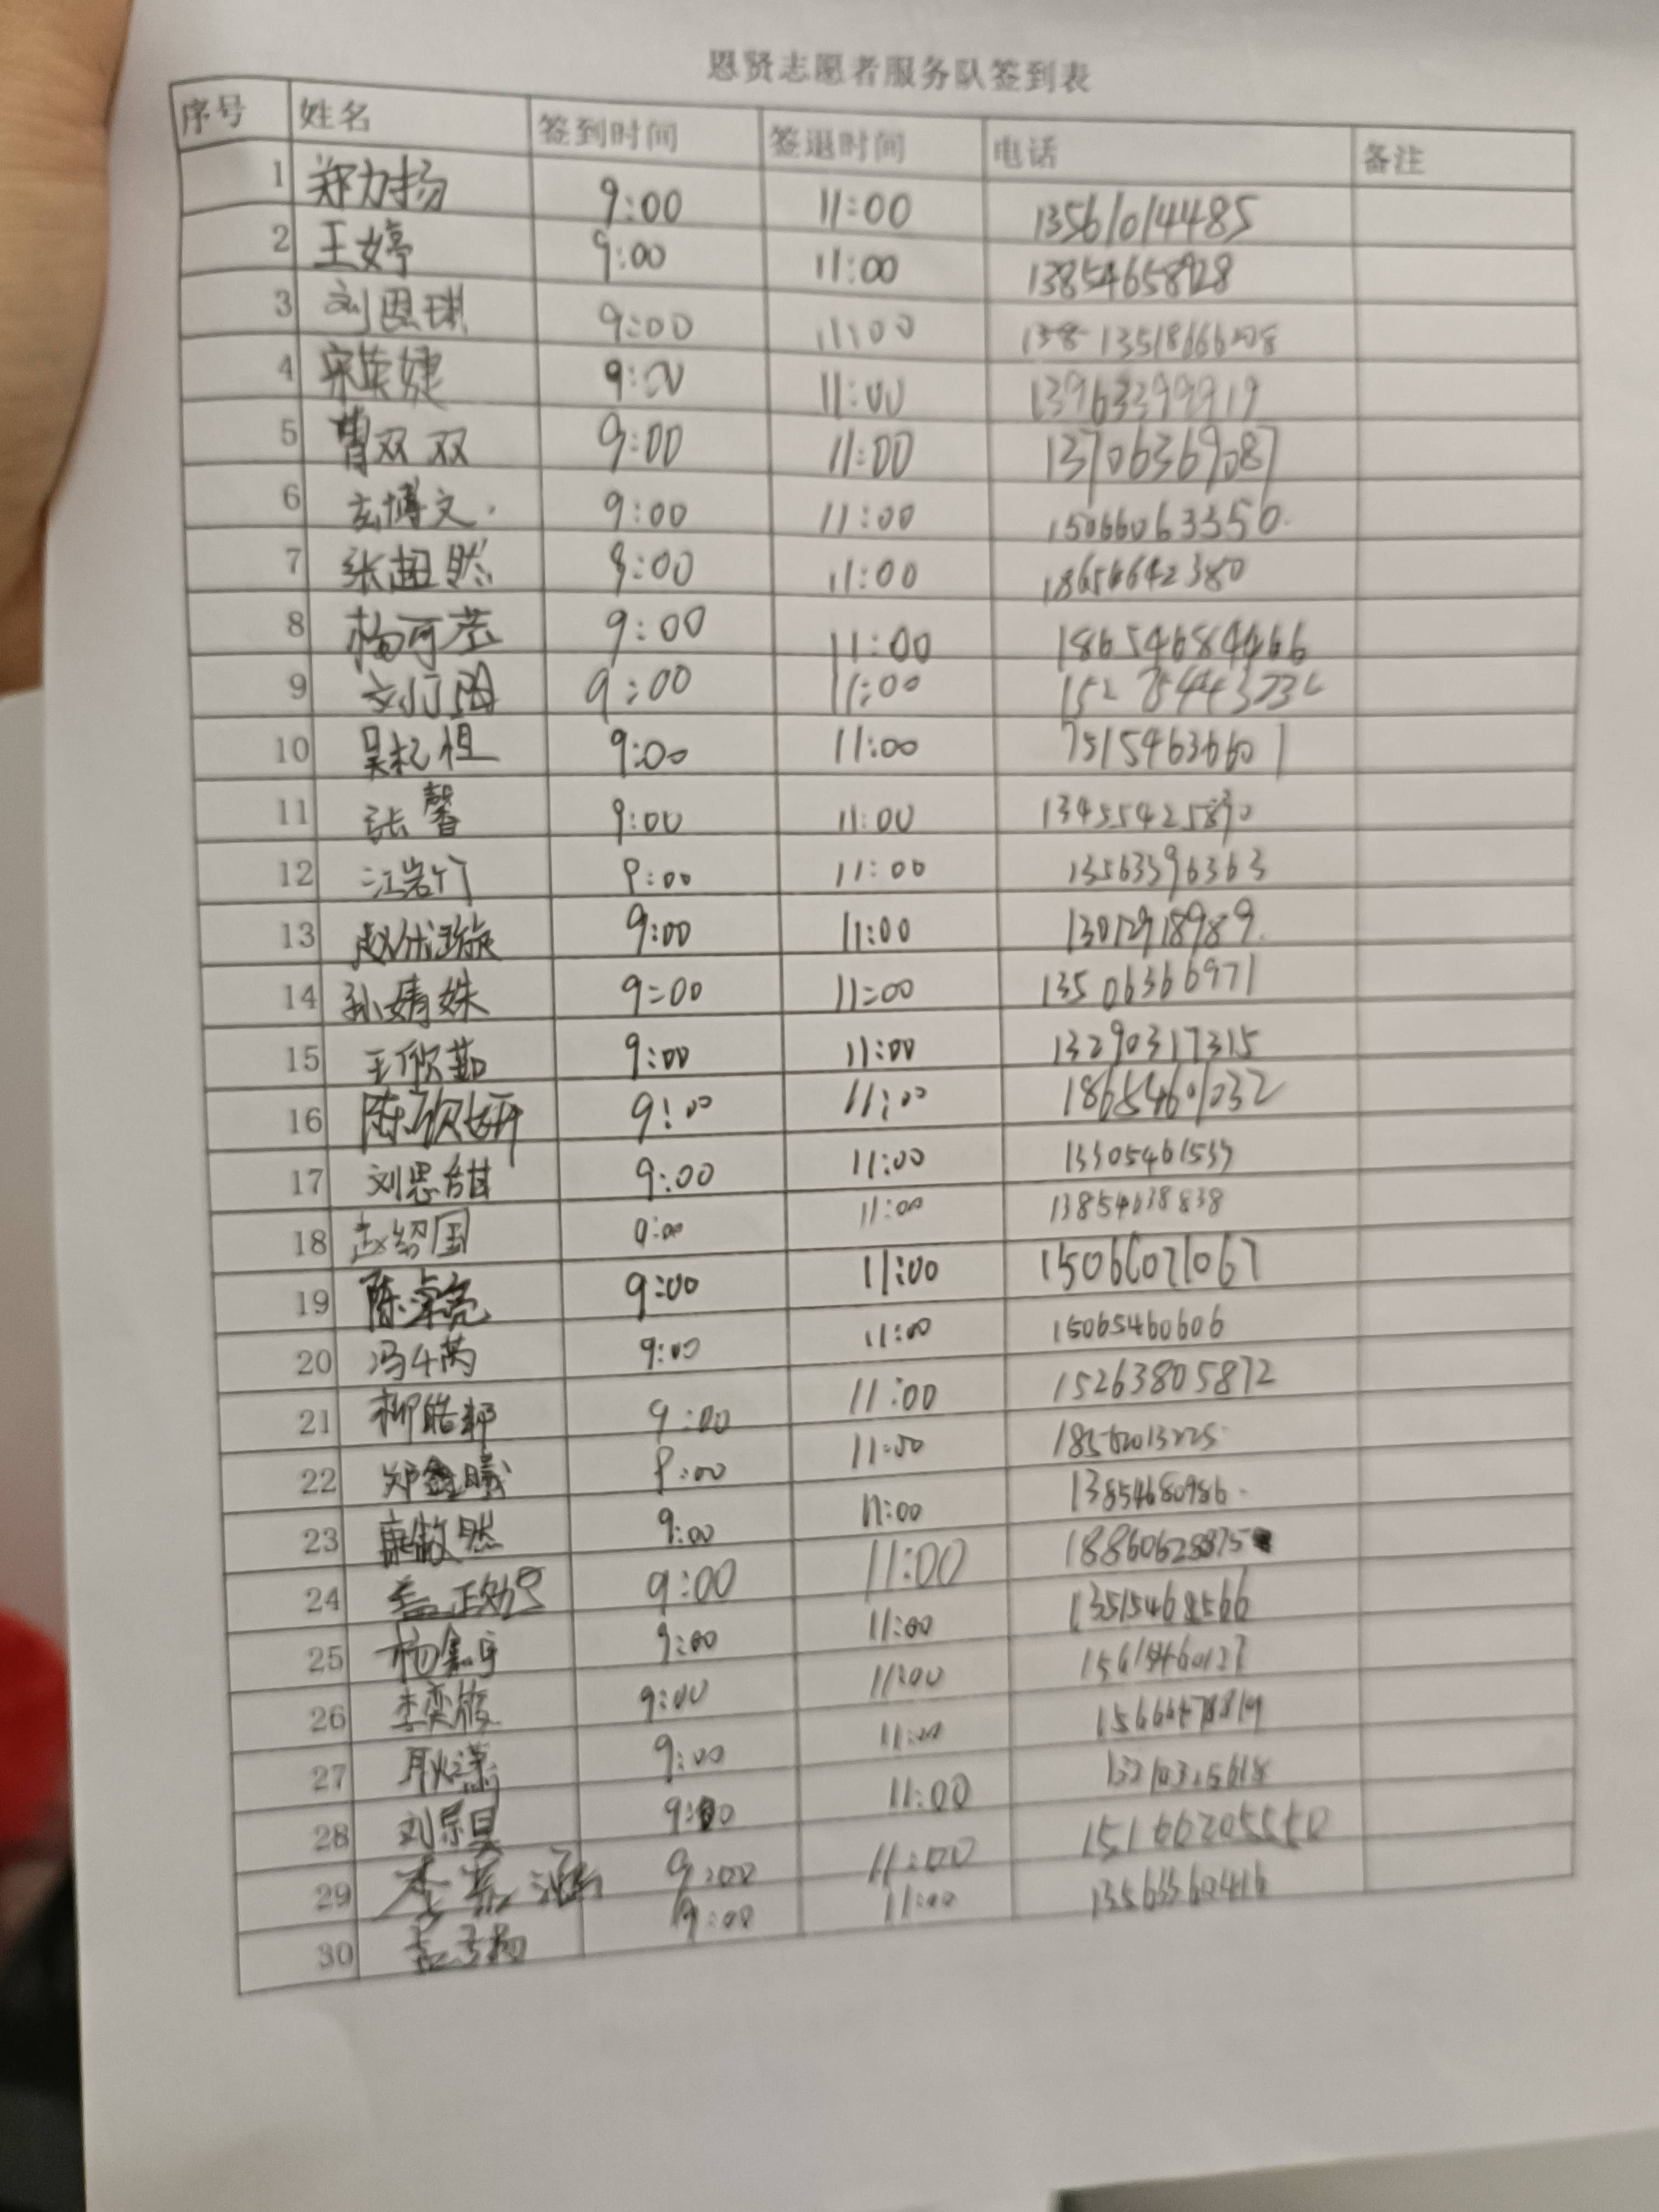 恩贤志愿者服务队签到表
序号 姓名 签到时间 签退时间 电话 备注
1 郑力扬 9:00 11:00 13561014485
2 王婷 9:00 11:00 13854658928
3 刘恩琪 9:00 11:00
4 9:00 11:00 13963399919
5 曹双双 9:00 11:00 13706369087
6 玄博文 9:00 11:00 15066063350
7 张超然 9:00 11:00 18654642380
8 杨可 9:00 11:00 18654684466
9 9:00 11:00
10 吴 9:00 11:00
11 张馨 9:00 11:00
12 江岩竹 9:00 11:00 13563396363
13 赵 9:00 11:00 13012918989
14 孙婧姝 9:00 11:00 13506366971
15 王 9:00 11:00 13290317315
16 陈欣妍 9:00 11:00 18654601032
17 刘思甜 9:00 11:00 13305461539
18 赵绍国 9:00 11:00 13854638838
19 陈 亮 9:00 11:00 15066071067
20 冯 9:00 11:00 15065460606
21 柳皓 9:00 11:00 15263805872
22 郑鑫曦 9:00 11:00 18562013225
23 康傲然 9:00 11:00 13854680986
24 盖正 9:00 11:00 18860628875
25 杨鑫宇 9:00 11:00 13515468566
26 李奕 9:00 11:00 15615460127
27 耿潇 9:00 11:00
28 刘宗昊 9:00 11:00
29 李 涵 9:00 11:00
30 9:00 11:00 13563560416